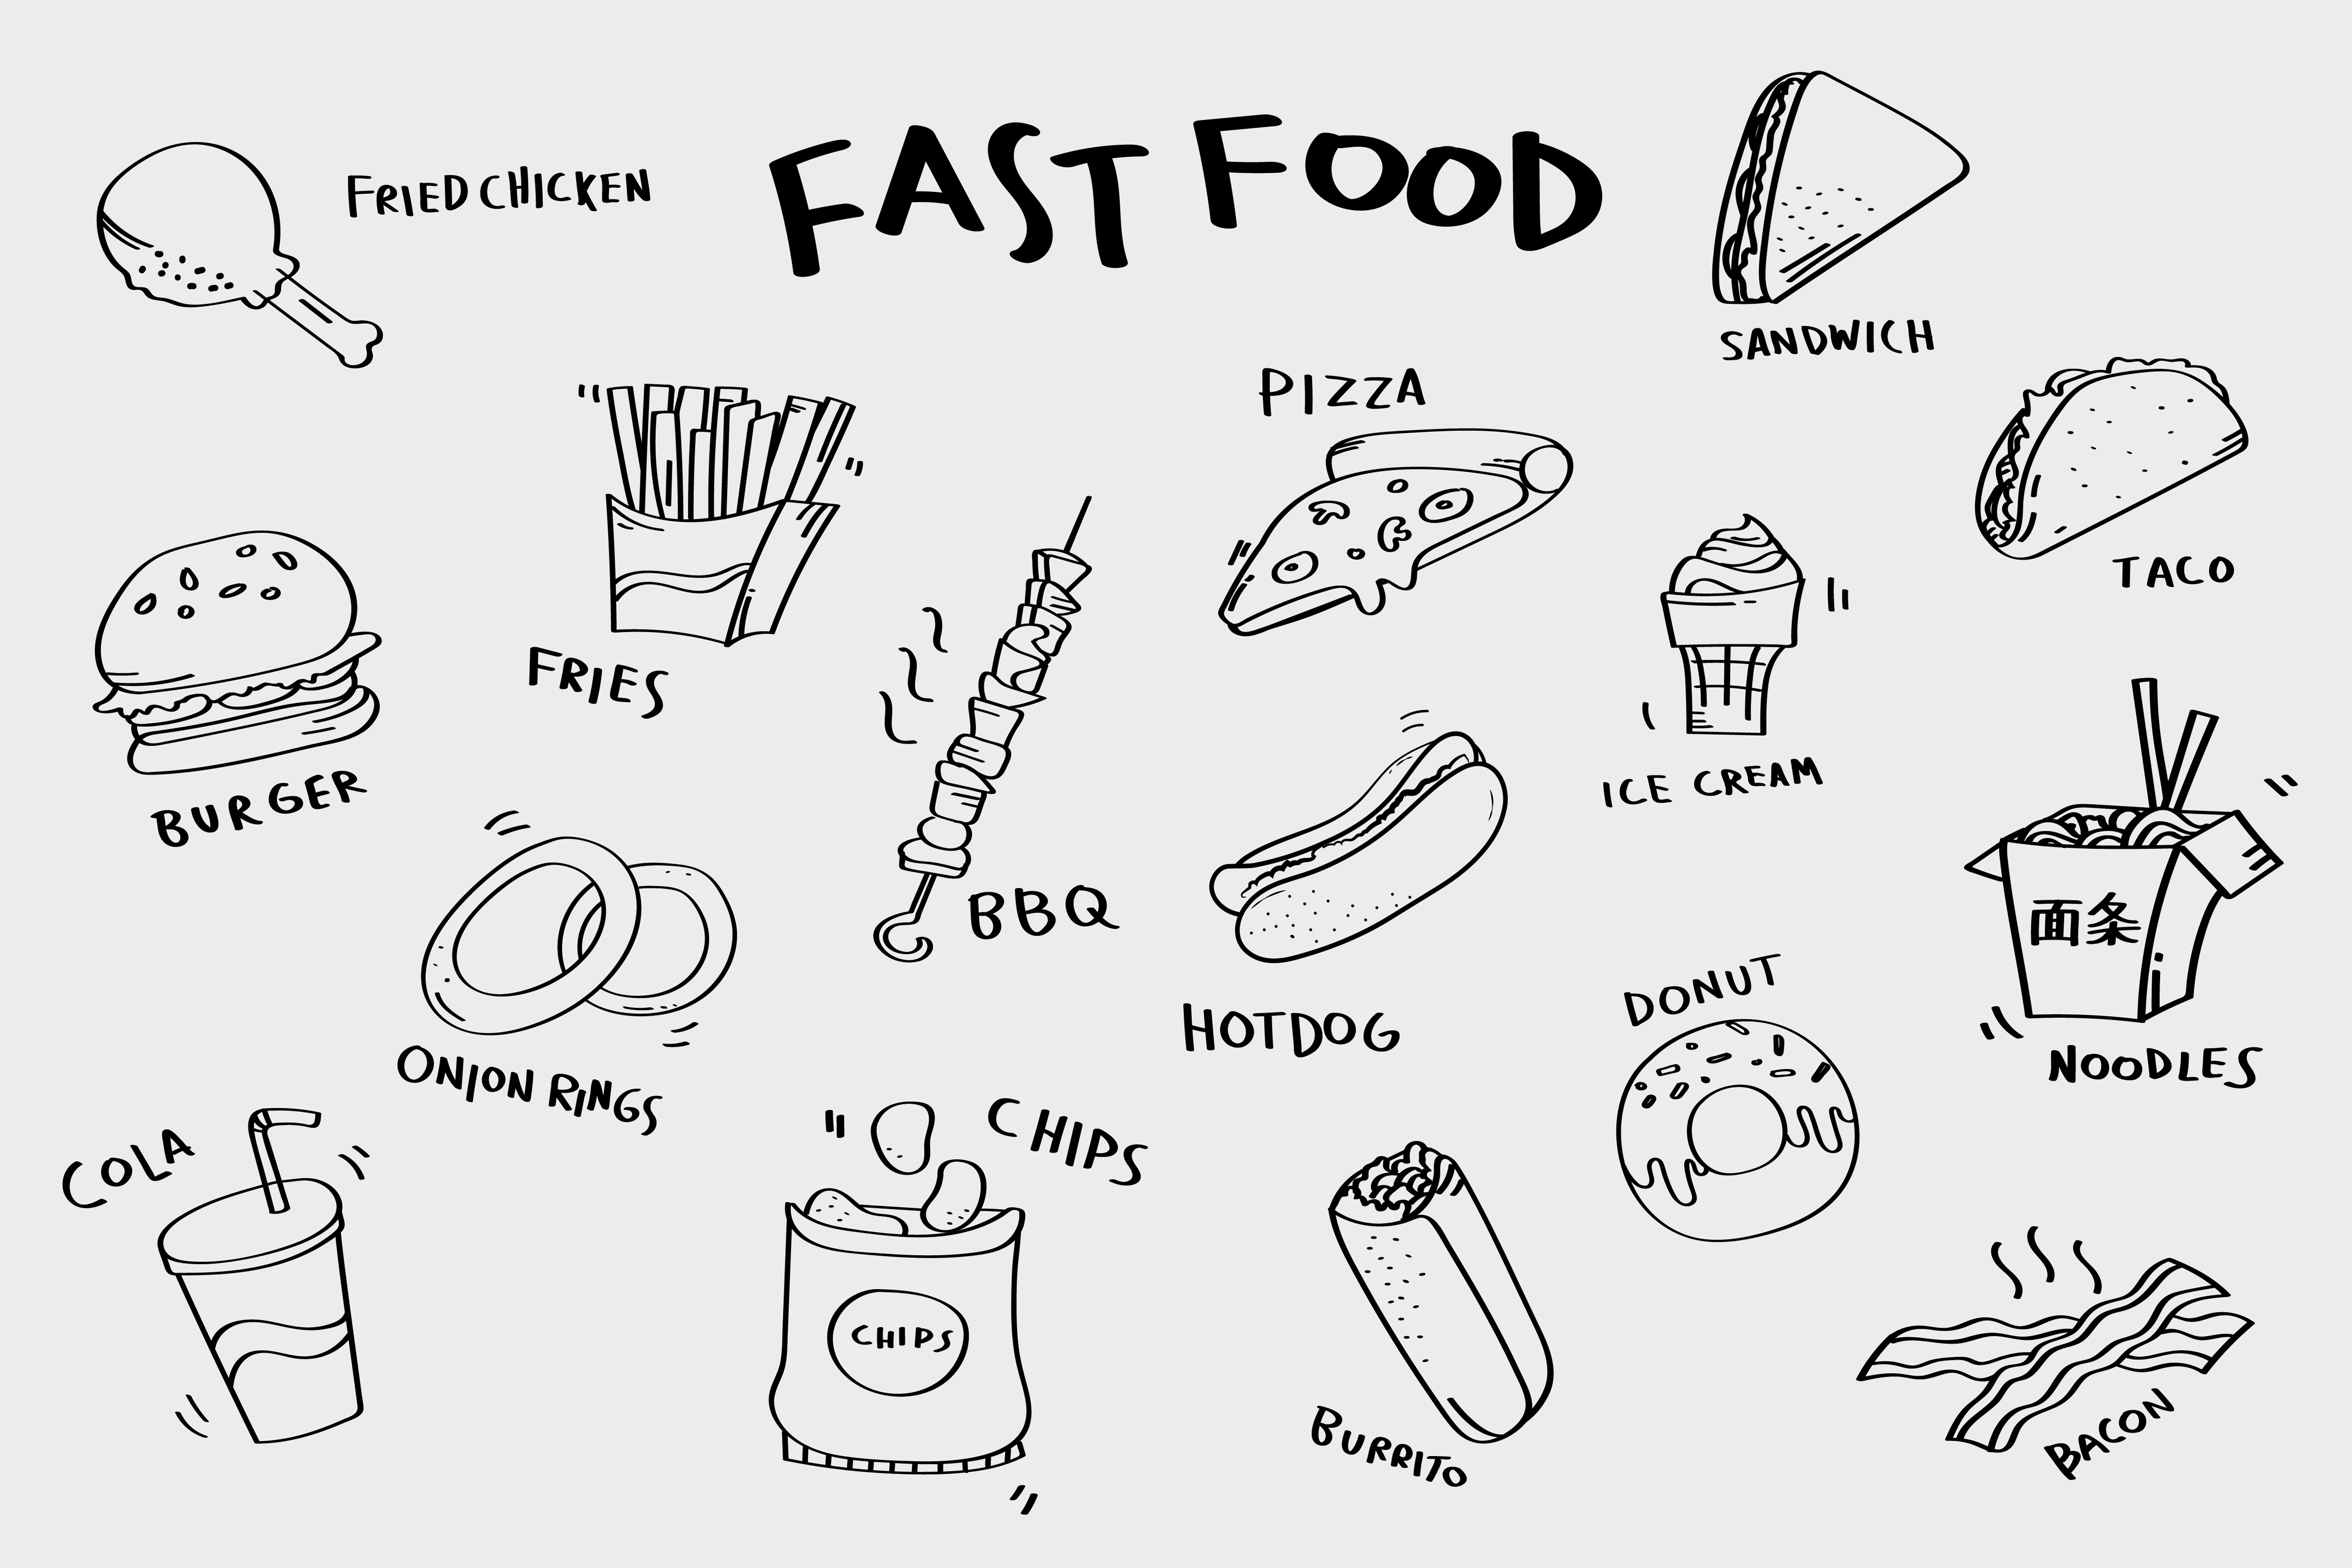 FAST FOOD
FRIED CHICKEN
SANDWICH
PIZZA
TACO
FRIES
BURGER
ICE CREAM
BBQ
面条
HOTDOG
DONUT
NOODLES
ONION RINGS
COLA
CHIPS
CHIPS
BURRITO
BACON